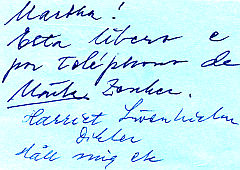 Martha!
Etta libero e
por teléphono de
Märta Zenker.
Harriet Löwenhielm
Dikter
Håll mig ek